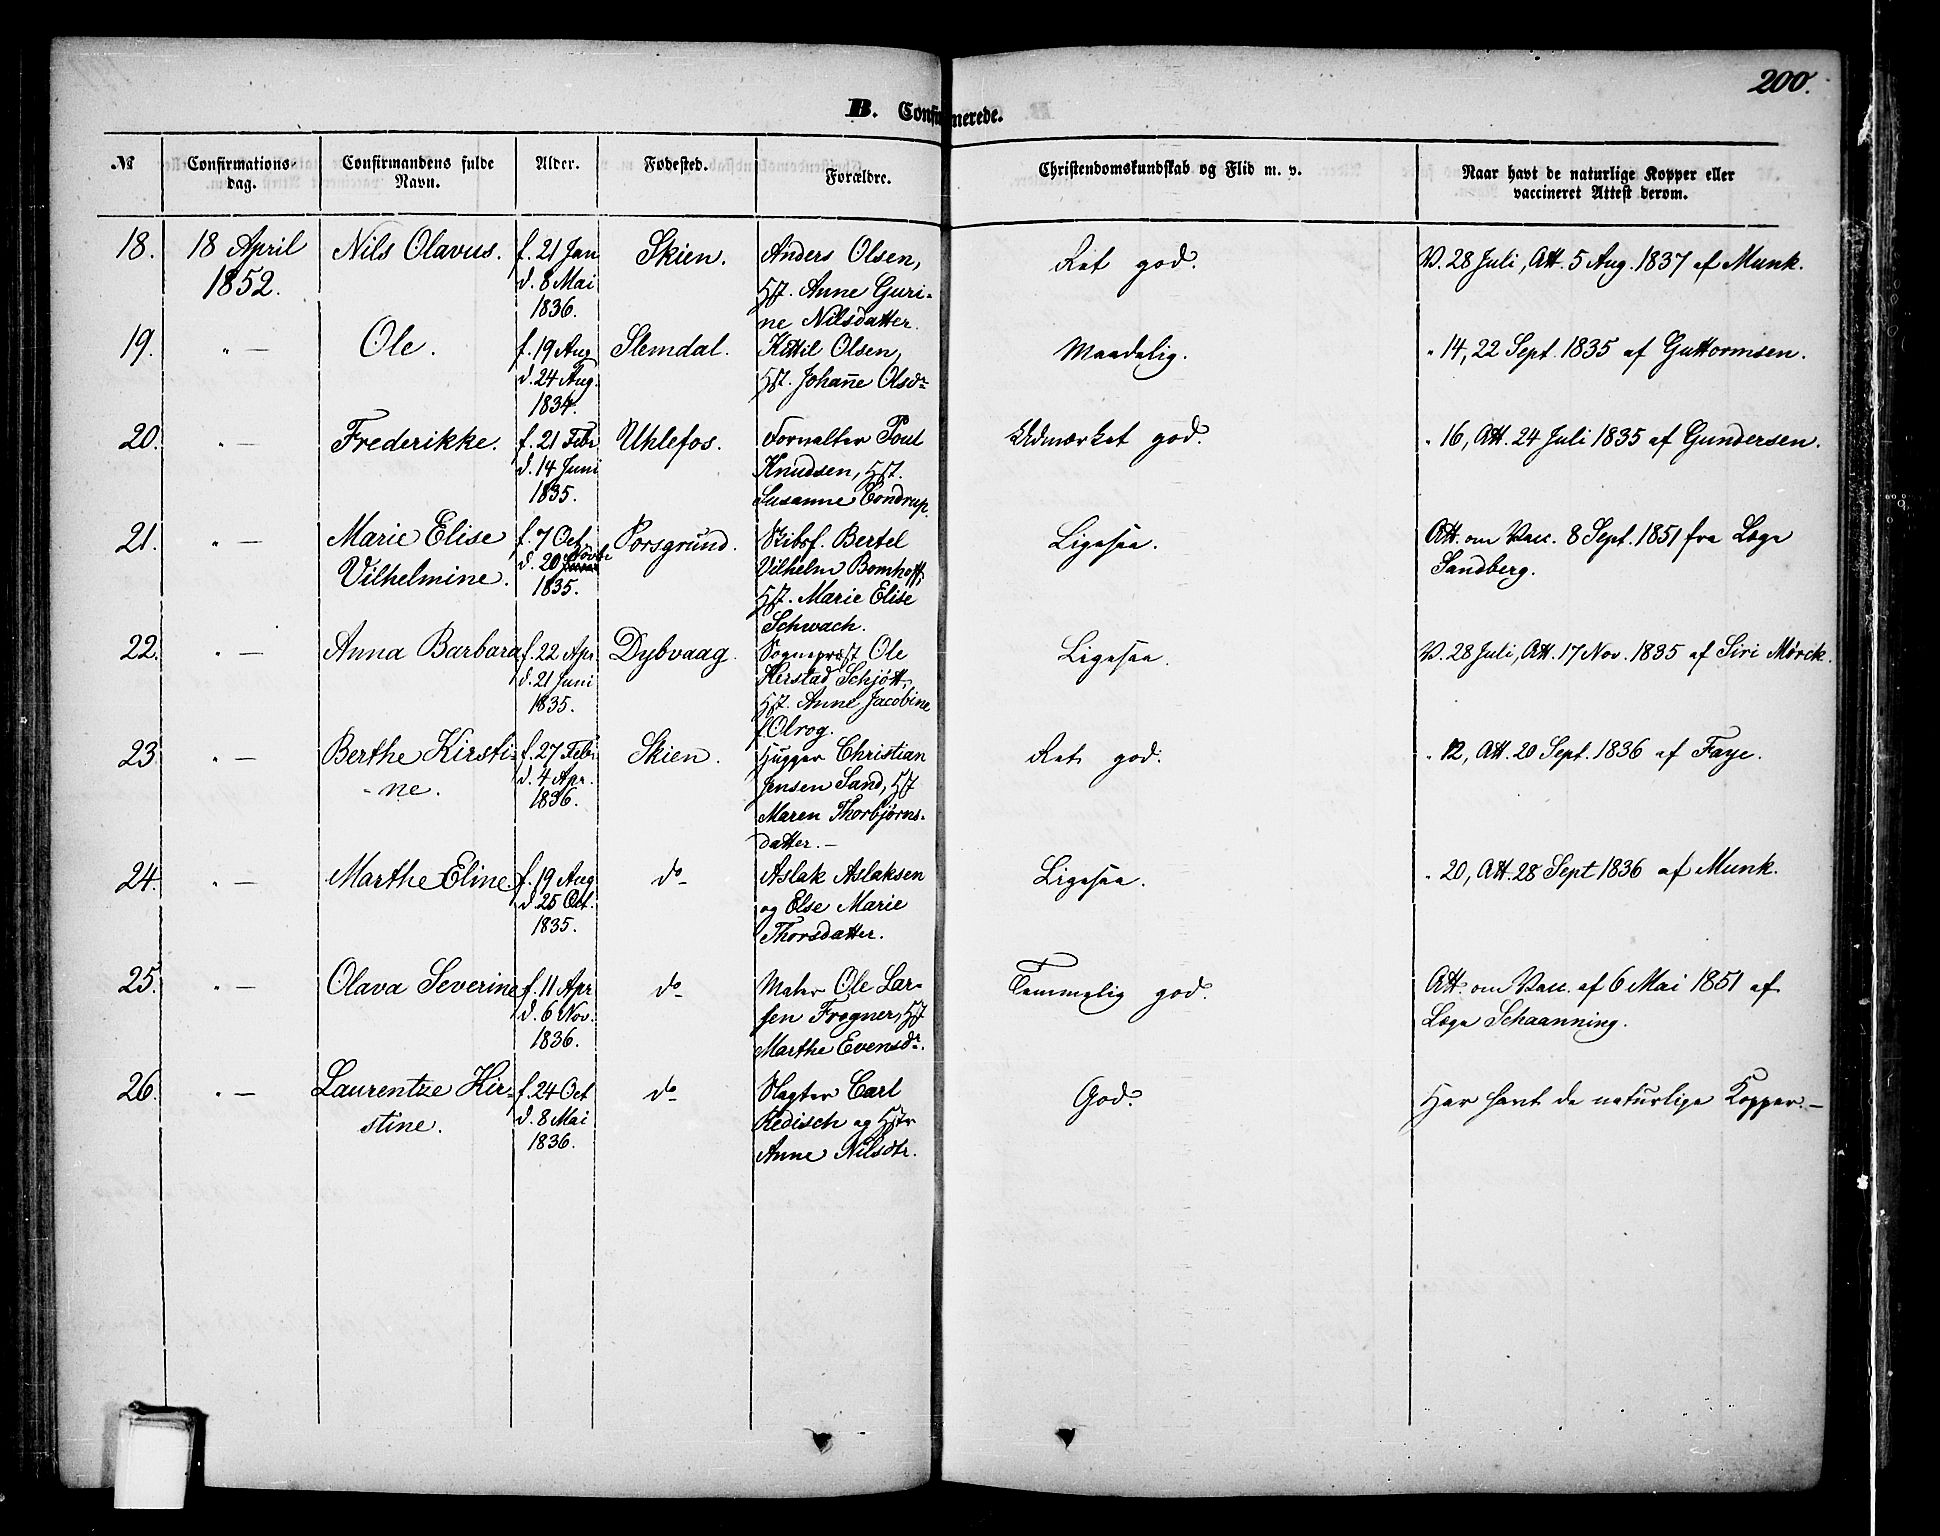 200.
B. Confirmerede.
№
Confirmations-
dag.
Confirmandens fulde
Navn.
Alder.
Fødested.
Forældre.
Christendomskundskab og Flid m. v.
Naar havt de naturlige Kopper eller
vaccineret Attest derom.
18. 18 April Nils Olavus. f. 21 Jan Skien. Anders Olsen, Ret god. V. 28 Juli, Att. 5 Aug. 1837 af Munk.
1852. d. 8 Mai Hst. Anne Guri-
1836. ne Nilsdatter.
19. " — Ole. f. 19 Aug Slemdal. Kittil Olsen, Maadelig. " 14, 22 Sept. 1835 af Guttormsen.
d. 24 Aug. Hst. Johanne Olsdr
1834.
20. " — Frederikke. f. 21 Febr Uhlefos. Forvalter Poul Udmærket god. " 16, Att. 24 Juli 1835 af Gundersen.
d. 14 Juni Knudsen, Hst.
1835. Susanne Tondrup.
21. " — Marie Elise f. 7 Oct. Porsgrund. Skibsf. Bertel Ligesaa. Att. om Vacc. 8 Sept. 1851 fra Læge
Vilhelmine. d. 20 Novbr Vilhelm Bomhoff, Sandberg.
1835. Hst. Marie Elise
Schwach.
22. " — Anna Barbara f. 22 Apr Dybvaag. Sognepræst Ole Ligesaa. V. 28 Juli, Att. 17 Nov. 1835 af Siri Mørck.
d. 21 Juni Kerstad Schjøtt,
1835. Hst. Anne Jacobine
f. Olrog.
23 " — Berthe Kirsti- f. 27 Febr Skien. Hugger Christian Ret god. " 12, Att. 20 Sept. 1836 af Faye.
-ne. d. 4 Apr. Jensen Sand, Hst
1836. Maren Thorbjørns-
datter. —
24. " — Marthe Eline. f. 19 Aug do Aslak Aslaksen Ligesaa. " 20, Att. 28 Sept 1836 af Munk.
d. 25 Oct. og Else Marie
1835. Thorsdatter.
25. " — Olava Severine f. 11 Apr do Maler Ole Lar- Temmelig god. Att. om Vacc. af 6 Mai 1851 af
d. 6 Nov. sen Frogner, Hst Læge Schaanning.
1836. Marthe Evensdr.
26. " — Laurentze Kir- f. 24 Oct do Slagter Carl God. Har havt de naturlige Kopper. —
stine. d. 8 Mai Redisch og Hstr
1836. Anne Nilsdtr.